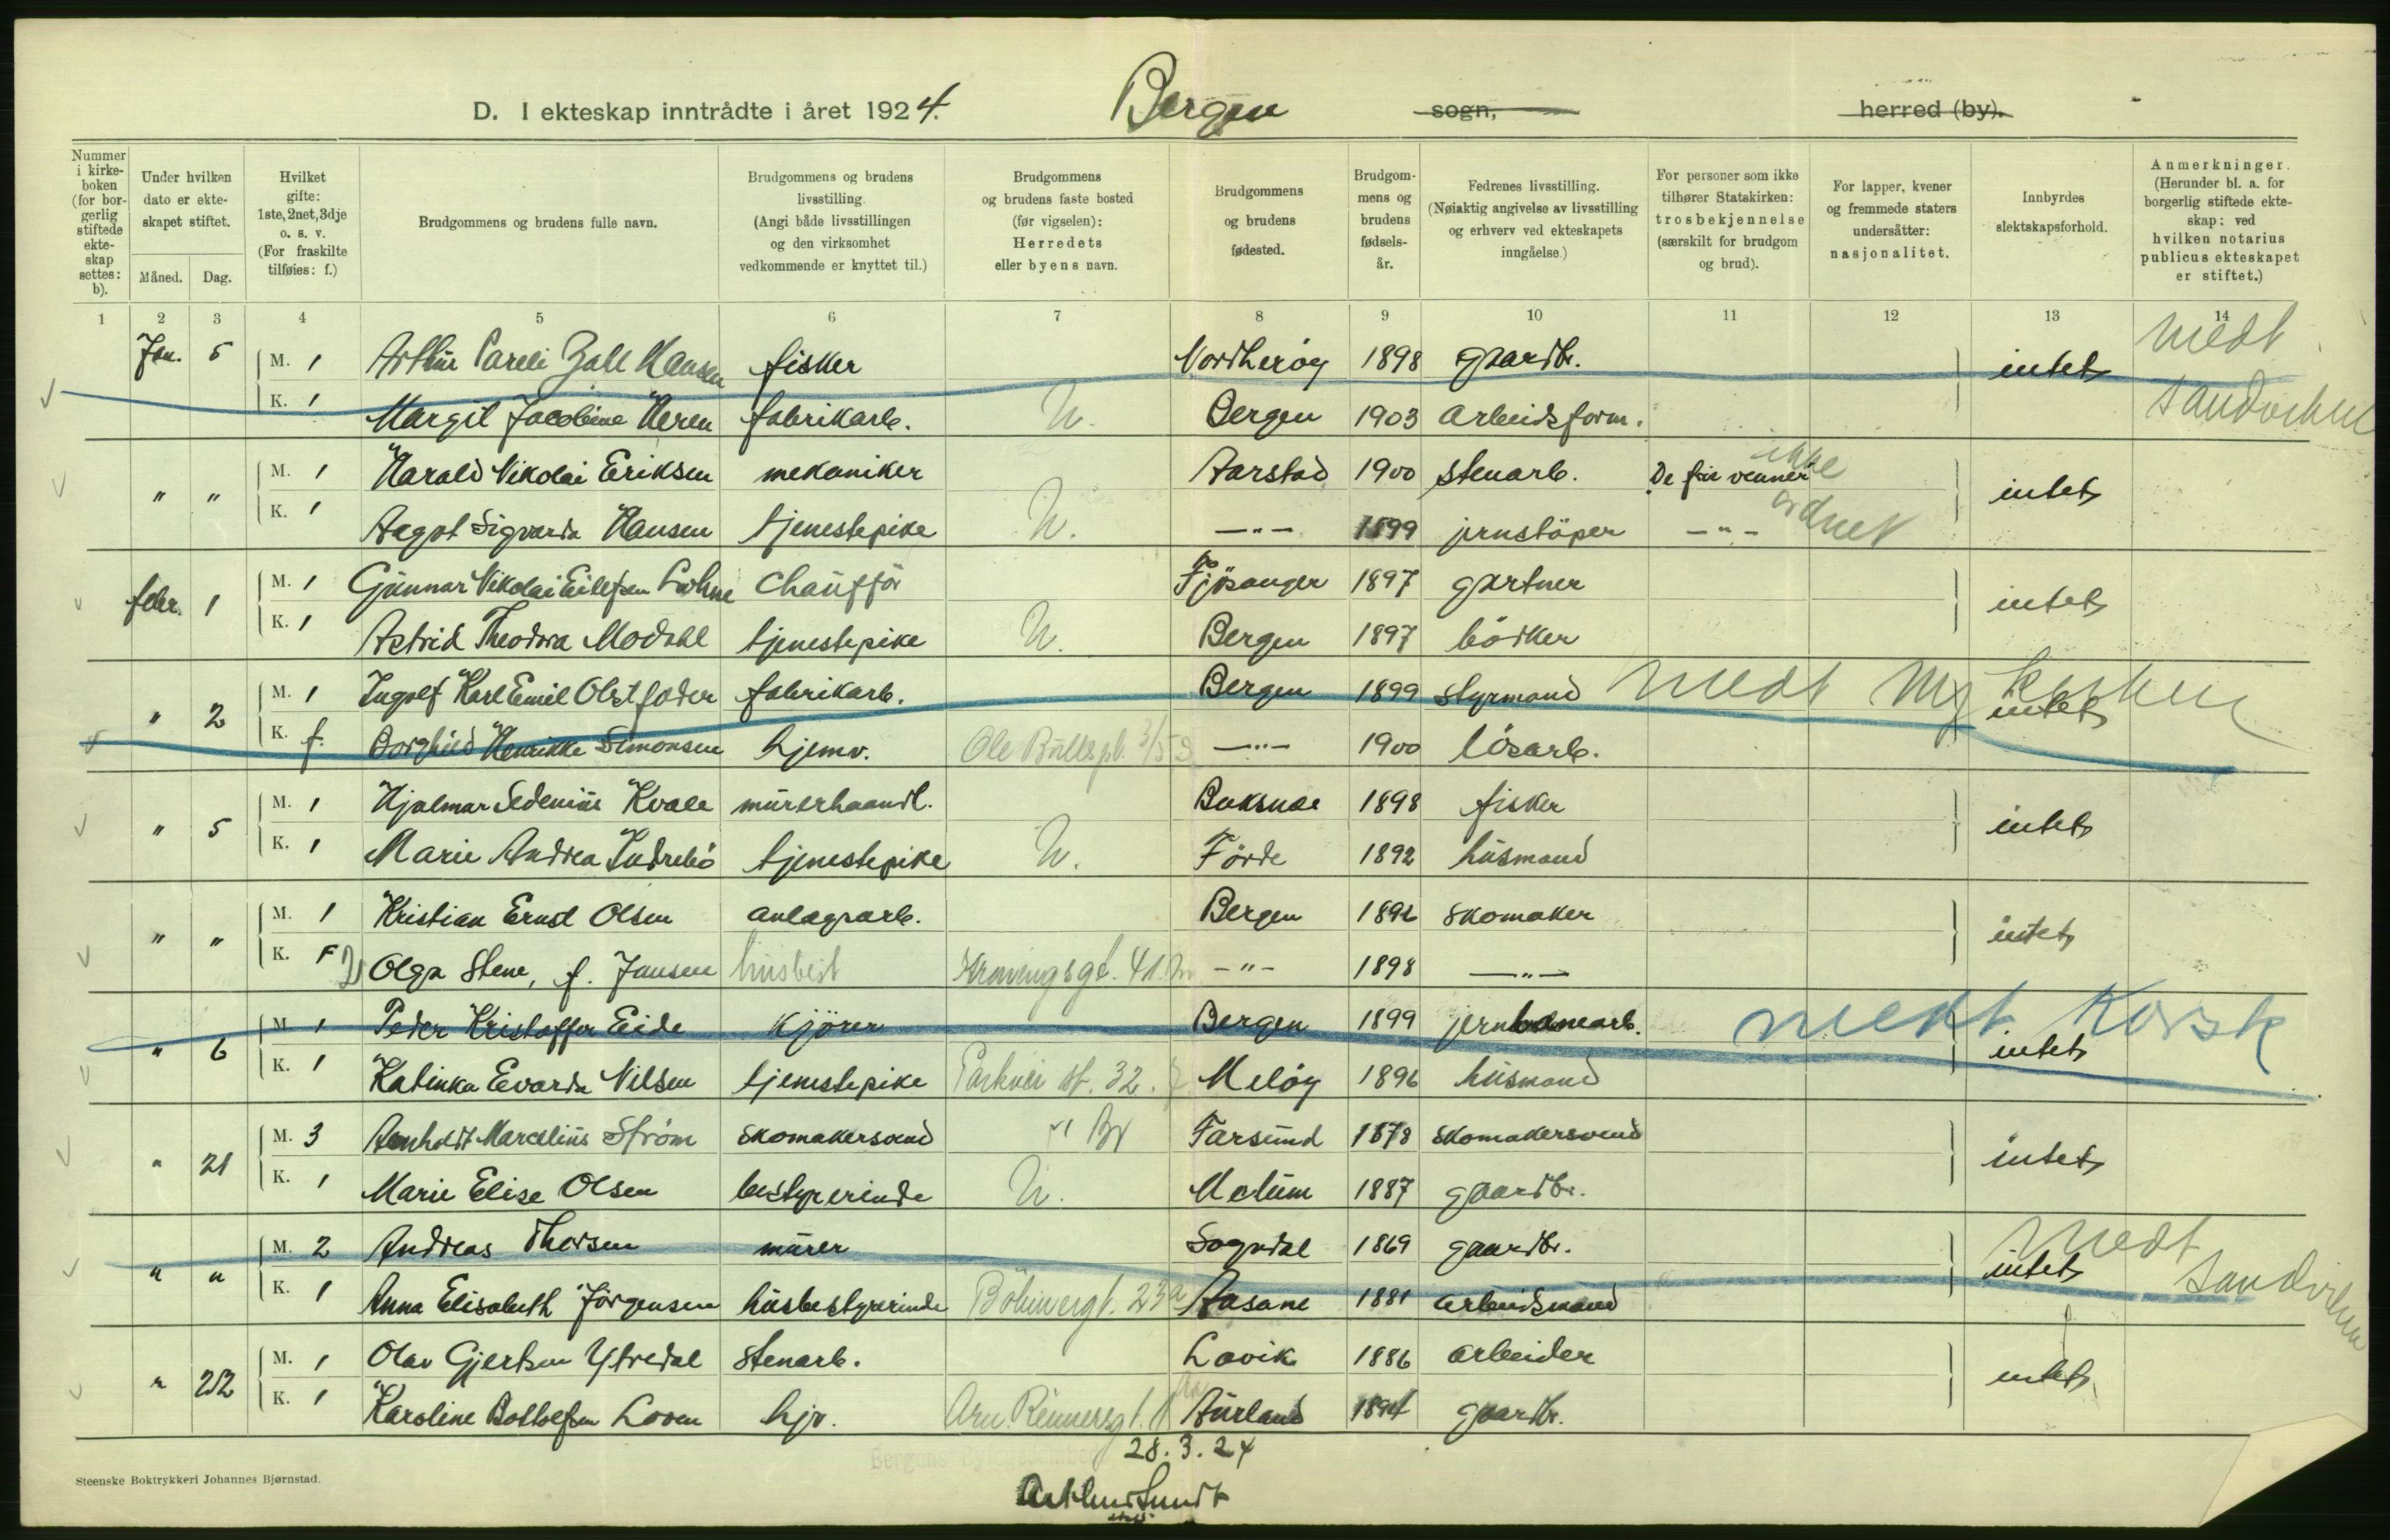 D. I ekteskap inntrådte i året 1924. Bergen sogn, herred (by).
Nummer i kirkeboken (for borgerlig stiftede ekteskap settes: b).
Under hvilken dato er ekteskapet stiftet.
Måned. Dag.
Hvilket gifte: 1ste, 2net, 3dje o. s. v. (For fraskilte tilføies: f.)
Brudgommens og brudens fulle navn.
Brudgommens og brudens livsstilling. (Angi både livsstillingen og den virksomhet vedkommende er knyttet til.)
Brudgommens og brudens faste bosted (før vigselen): Herredets eller byens navn.
Brudgommens og brudens fødested.
Brudgommens og brudens fødselsår.
Fedrenes livsstilling. (Nøiaktig angivelse av livsstilling og erhverv ved ekteskapets inngåelse.)
For personer som ikke tilhører Statskirken: trosbekjennelse (særskilt for brudgom og brud).
For lapper, kvener og fremmede staters undersåtter: nasjonalitet.
Innbyrdes slektskapsforhold.
Anmerkninger. (Herunder bl. a. for borgerlig stiftede ekteskap: ved hvilken notarius publicus ekteskapet er stiftet.)
1 2 3 4 5 6 7 8 9 10 11 12 13 14
Jan. 5 M. 1 Arthur Pareli Zahl Hansen fisker Nordherøy 1898 gaardbr. intet medt
K. 1 Margit Jacobine Heren fabrikarb. U. Bergen 1903 arbeidsform. Sandviken
" " M. 1 Harald Nikolai Eriksen mekaniker Aarstad 1900 stenarb. De frie venner ikke intet
K. 1 Aagot Sigvarda Hansen tjenestepike U. —"— 1899 jernstöper —"— ordnet
febr. 1 M. 1 Gunnar Nikolai Eilefsen Lohne Chaufför Fjösanger 1897 gartner intet
K. 1 Astrid Theodora Modahl tjenestepike U. Bergen 1897 bödker
" 2 M. 1 Ingolf Karl Emil Olstfoder fabrikarb. Bergen 1899 styrmand medt Nykirken intet
K. f. Borghild Henrikke Simonsen hjemv. Ole Bullspl. 3/5 —"— 1900 lösarb.
" 5 M. 1 Hjalmar Sedenius Kvale murerhaandl. Buksnes 1898 fisker intet
K. 1 Marie Andrea Indrebö tjenestepike U. Förde 1892 husmand
" " M. 1 Kristian Ernst Olsen anlagsarb. Bergen 1892 skomaker intet
K. F Olga Stene, f. Jansen husbest 41. —"— 1898 —"—
" 6 M. 1 Peder Kristoffer Eide Kjörer Bergen 1899 jernbanearb. medt Korsk intet
K. 1 Katinka Evarda Nilsen tjenestepike Parkvei st. 32. Melöy 1896 husmand
" 21 M. 3 Arnholdt Marcelius Ström skomakersvend Br Farsund 1878 skomakersvend intet
K. 1 Marie Elise Olsen bestyrerinde U. Modum 1887 gaardbr.
" " M. 2 Andreas Thorsen murer Sogndal 1869 gaardbr. intet medt
K. 1 Anna Elisabeth Jörgensen husbestyrerinde Böhmergt. 23a Aasane 1881 arbeidsmand Sandviken
" 22 M. 1 Olav Gjertsen Ytredal Stenarb. Lavik 1886 arbeider intet
K. 1 Karoline Botolfsen Loven hjv. Arn. Reimersgt. Aurland 1894 gaardbr.
28.3.24
Steenske Boktrykkeri Johannes Bjørnstad.